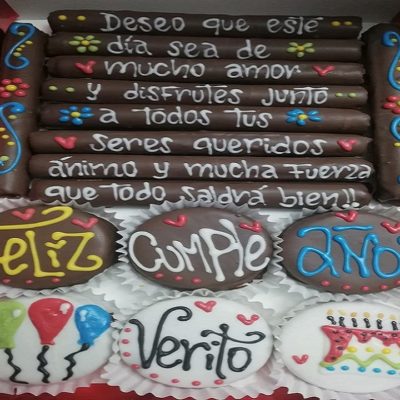 Deseo que esté
día sea de
mucho amor
y disfrutes junto
a todos tus
seres queridos
ánimo y mucha fuerza
que todo saldrá bien!!
Feliz Cumple años
Verito